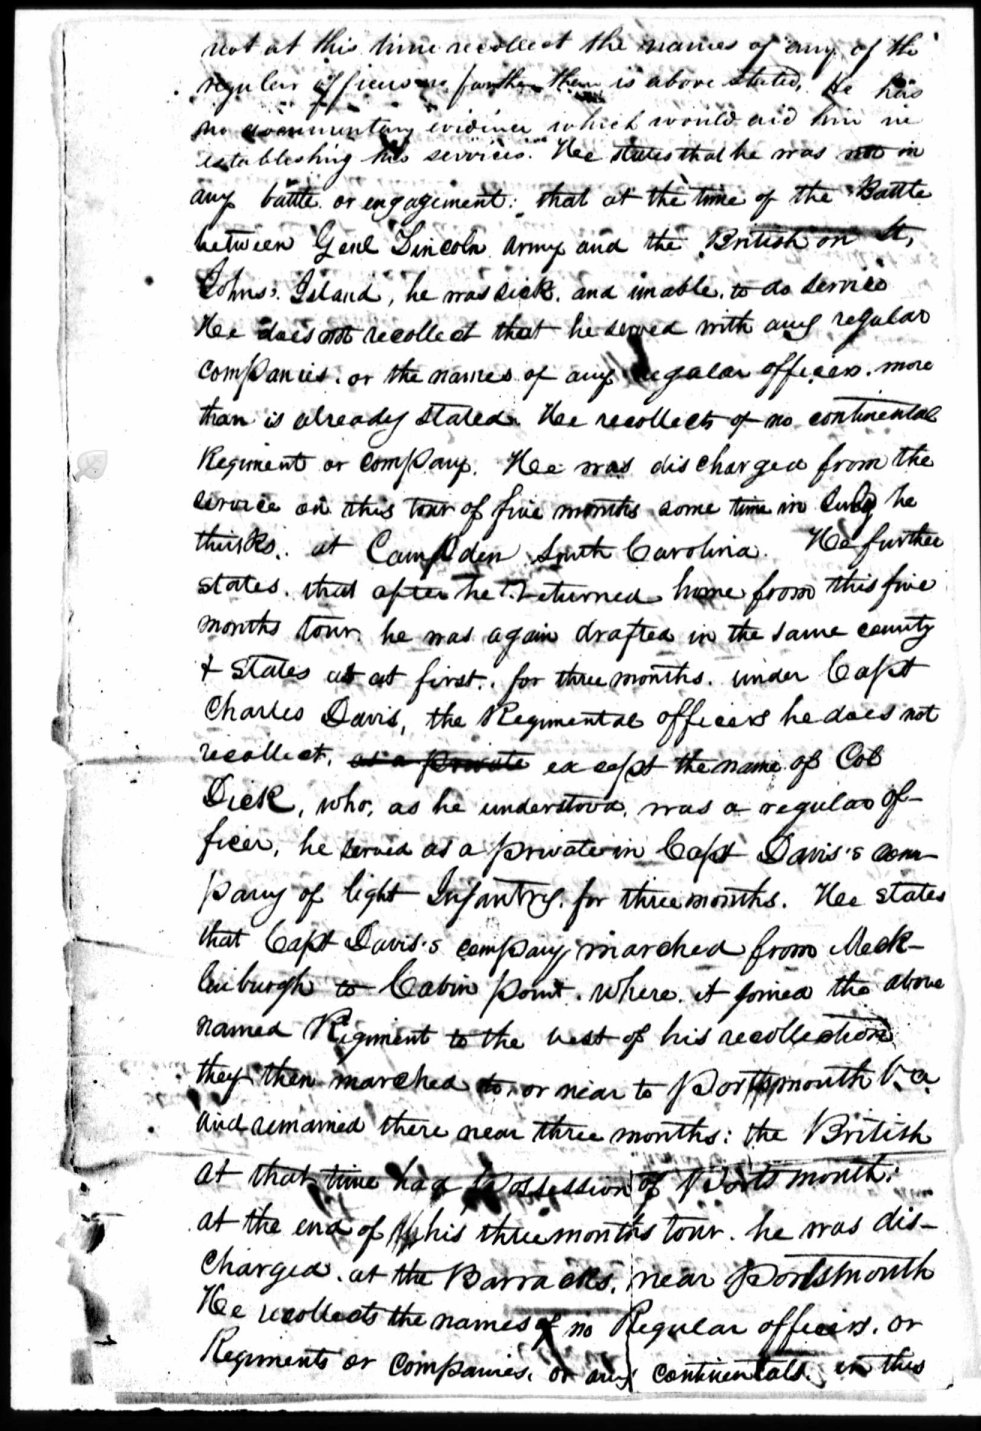 not at this time recollect the names of any of the
regular officers no further than is above stated. He has
no documentary evidence which would aid him in
establishing his services. Hee states that he was not in
any battle or engagement; that at the time of the Battle
between Genl Lincoln army and the British on St,
Johns: Island, he was sick. and unable. to do service
Hee does not recollect that he served with any regular
companies. or the names of any regular officers. more
than is already stated. Hee recollects of no continental
Regiment or company. Hee was discharged from the
service on this tour of five months some time in July he
thinks. at Campden South Carolina. Hee further
states. that after he returned home from this five
months tour. he was again drafted in the same county
& States as at first. for three months. under Capt
Charles Davis, the Regimental officers he does not
recollect, as a private except the name of Col
Dick, who, as he understood, was a regular of-
ficer, he served as a private in Capt Davis's com-
pany of light Infantry. for three months. Hee states
that Capt Davis's company marched from Meck-
lenburgh to Cabin point. where. it joined the above
named Regiment to the best of his recollection
they then marched to or near to Portsmouth Va
and remained there near three months: the British
at that time had possession of Portsmouth.
at the end of this three months tour. he was dis-
charged. at the Barracks. near Portsmouth
Hee recollects the names of no Regular officers. or
Regiments or companies. or any continentals. in this